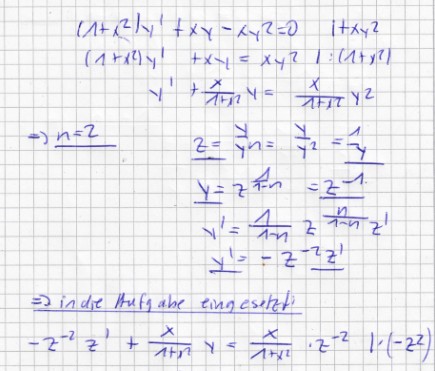 (1+x²)y' + xy - xy2=0 | +xy2
(1+x²)y' + xy = xy2 | :(1+x²)
y' + x/(1+x²) y = x/(1+x²) y2
=> n=2 z = y/yn = y/y2 = 1/y
y = z^(1/(1-n)) = z^-1
y' = 1/(1-n) z^(n/(1-n)) z'
y' = - z^-2 z'
=> in die Aufgabe eingesetzt:
-z^-2 z' + x/(1+x²) y = x/(1+x²) · z^-2 | ·(-z²)